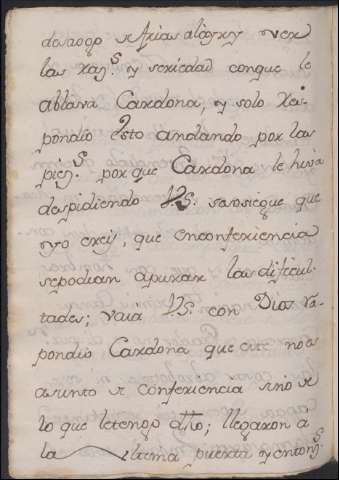 desaogo de frias alogxey vex
las xas.^s y sexiedad conque le
ablava Caxdona, y solo xes-
pondio Esto andando por las
pies.^s porque Caxdona le hiva
despidiendo V.S. sesosiegue que
yo crei, que enconfexiencia
sepodian apuxax las dificul-
tades; vaia V.S. con Dios xa-
pondio Caxdona que este no es
asunto de confexiencia sino de
lo que letengo dho; llegaxon a
la ultima puexta y enton^s